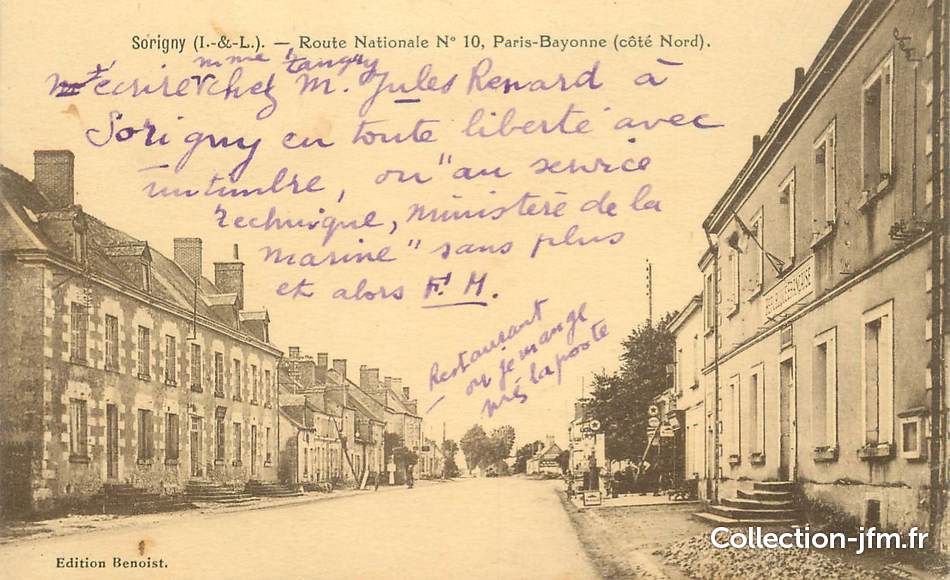 Sorigny (I.-&-L.). — Route Nationale N° 10, Paris-Bayonne (côté Nord).
mme tanguy
m'écrire chez M. Jules Renard à
Sorigny en toute liberté avec
un timbre, ou "au service
technique, ministère de la
marine" sans plus
et alors F. M.
Restaurant
où je mange
près la poste
REPUBLIQUE FRANÇAISE
Edition Benoist.
Collection-jfm.fr